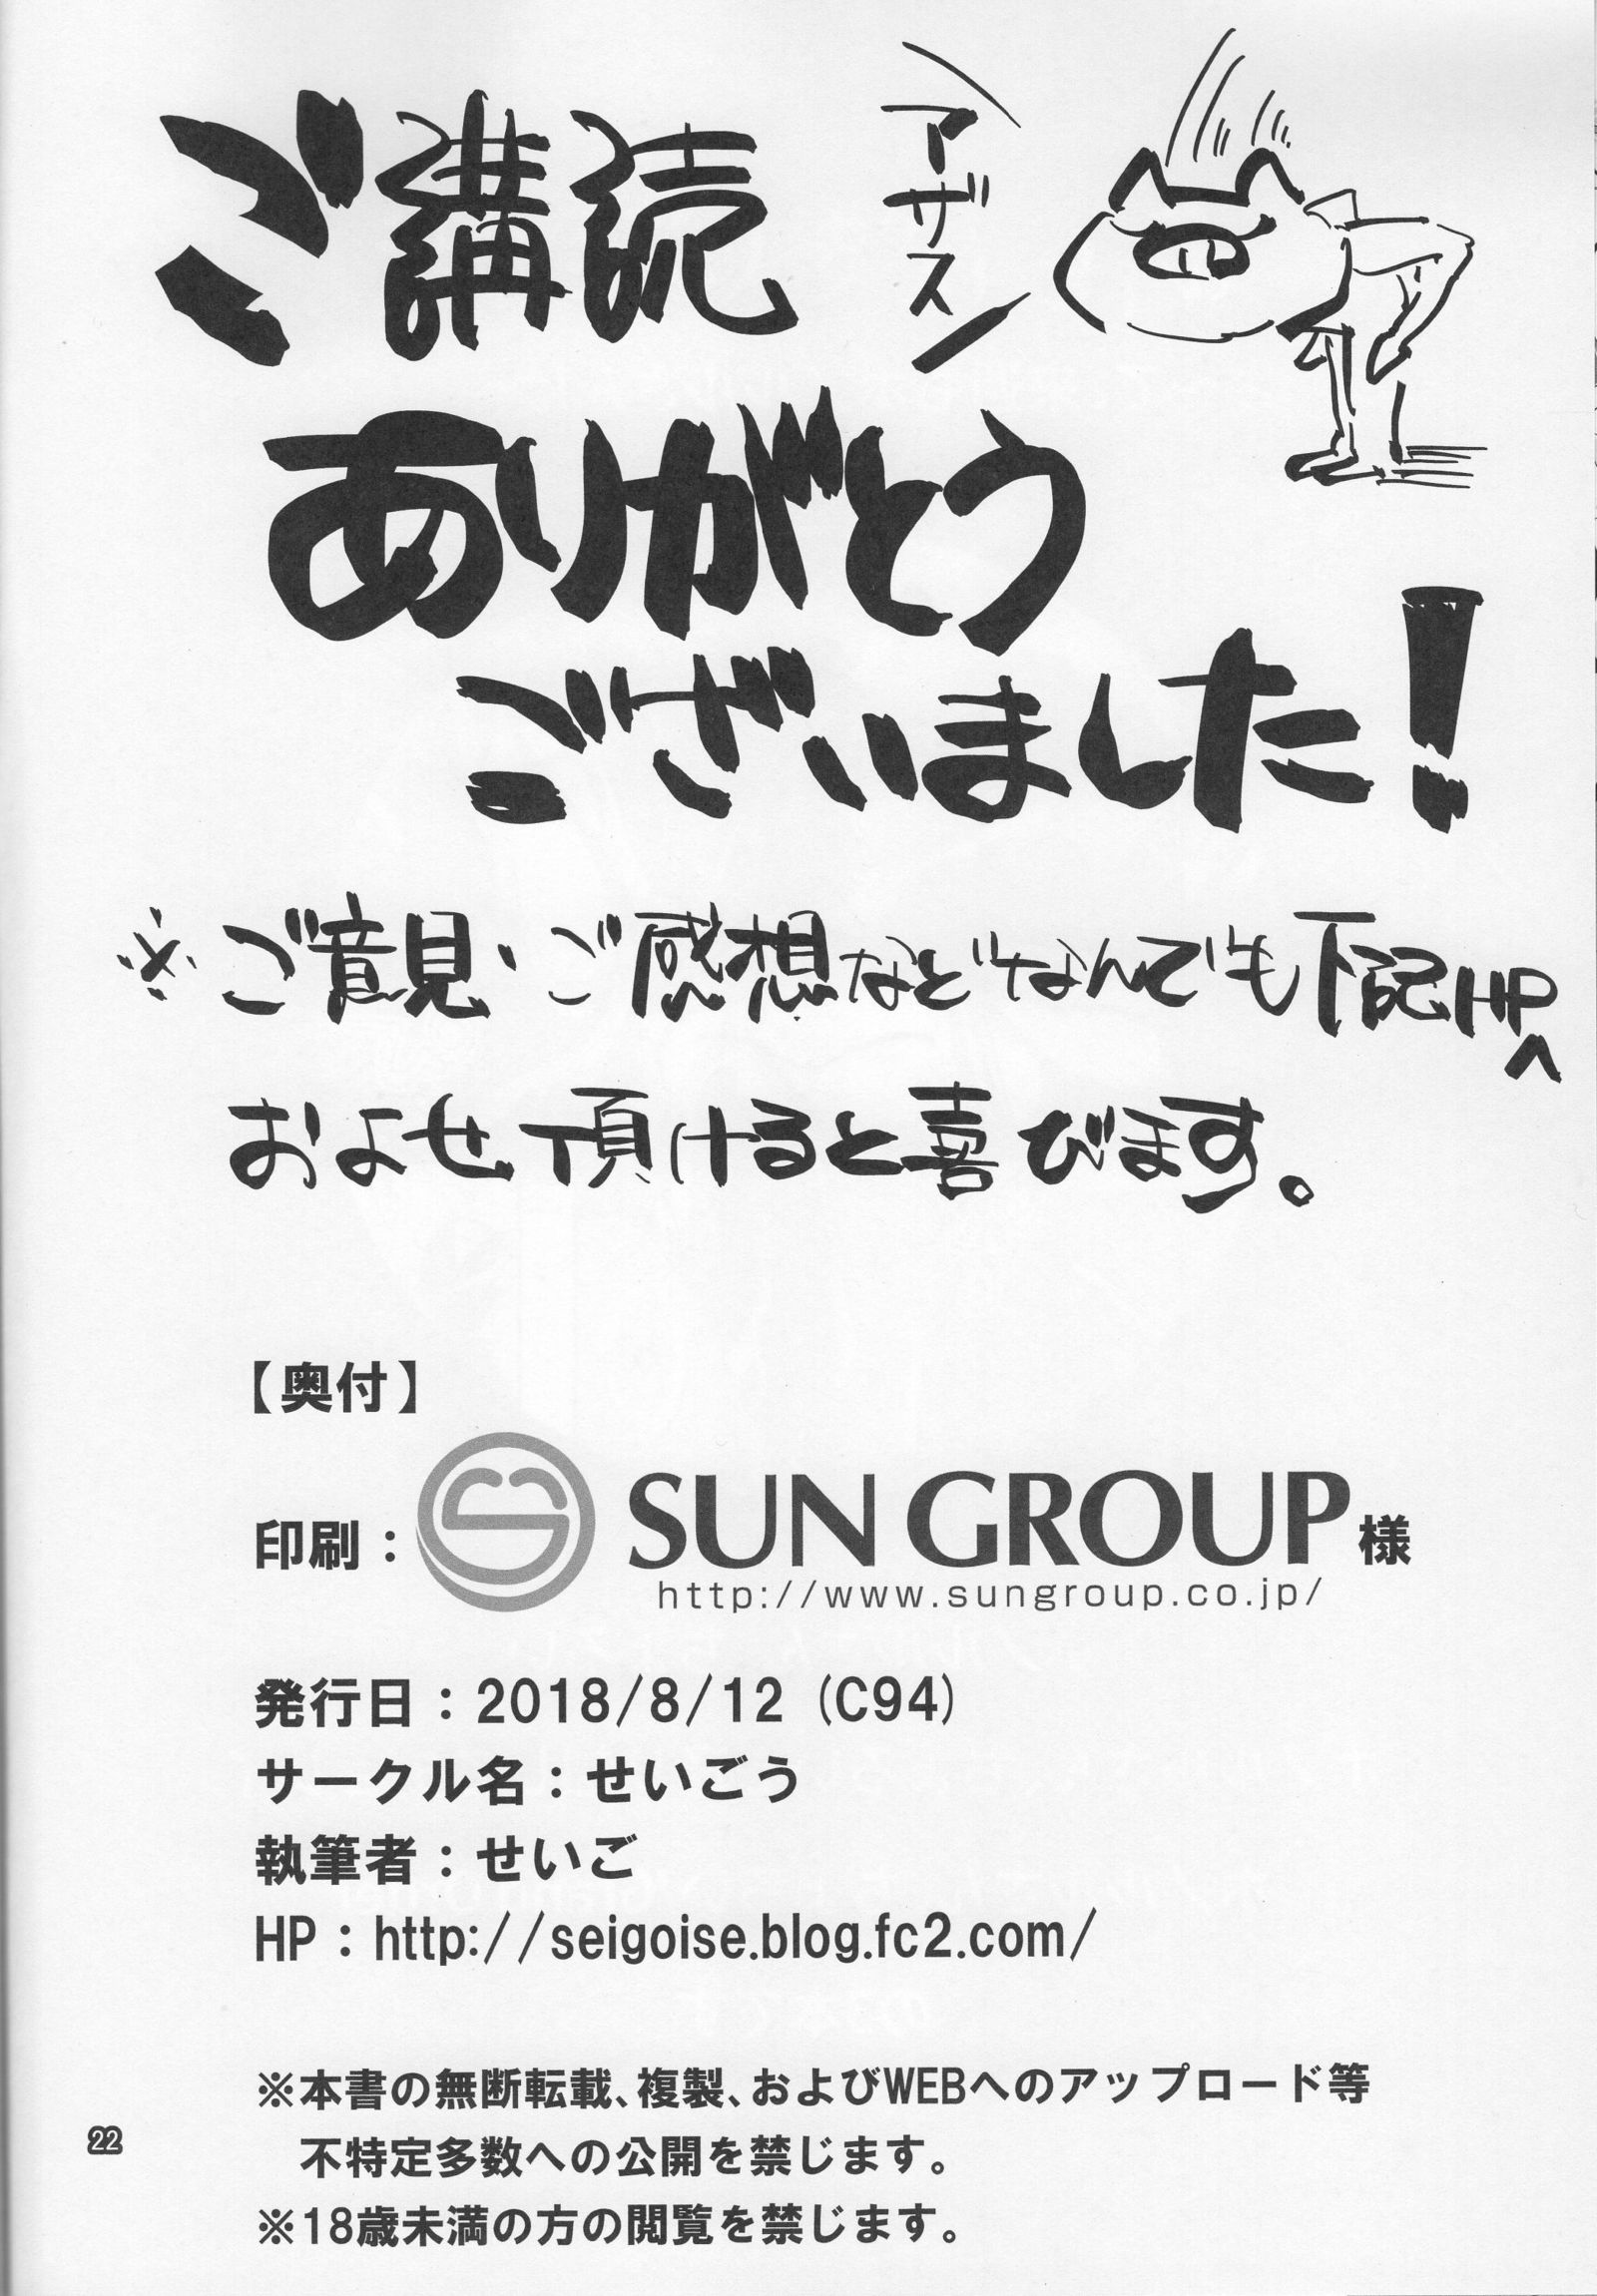 ご講読
アザス
ありがとう
ございました!
※ご意見・ご感想などなんでも下記HPへ
およせ頂けると喜びます。
【奥付】
印刷：SUN GROUP様
http://www.sungroup.co.jp/
発行日：2018/8/12 (C94)
サークル名：せいごう
執筆者：せいご
HP：http://seigoise.blog.fc2.com/
※本書の無断転載、複製、およびWEBへのアップロード等
不特定多数への公開を禁じます。
※18歳未満の方の閲覧を禁じます。
22